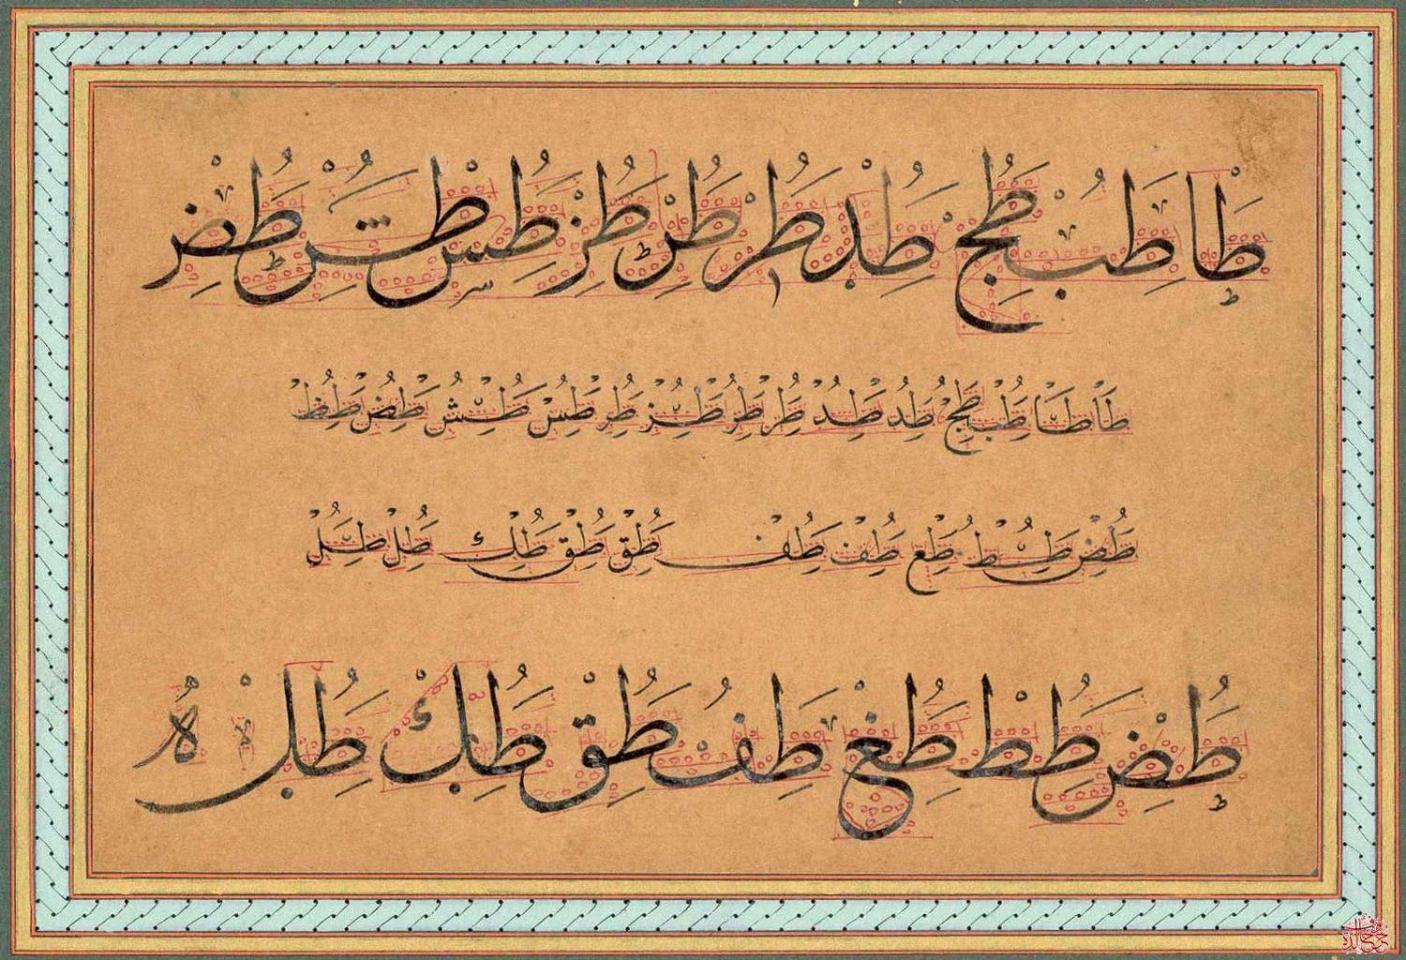 طا طب طج طد طر طر طز طس طش طض
طا طا طب طج طد طد طر طر طز طر طس طش طض طط
طض طط طع طف طف طق طق طك طل طل
طض طط طغ طف طق طك طل ه